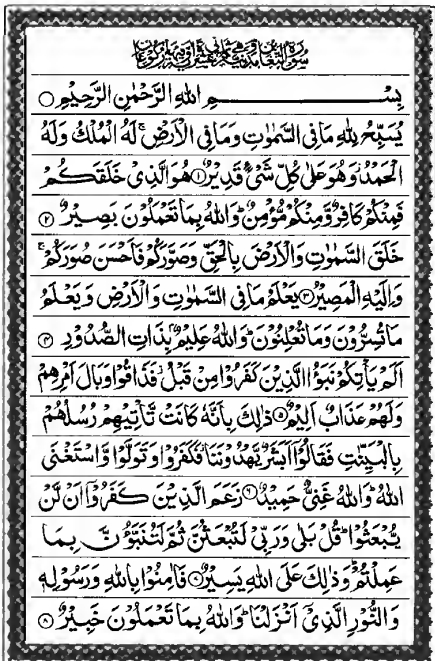 بِسْــــــمِ اللهِ الرَّحْمٰنِ الرَّحِيْمِ ○
يُسَبِّحُ لِلّٰهِ مَا فِى السَّمٰوٰتِ وَمَا فِى الْاَرْضِ ۚ لَهُ الْمُلْكُ وَلَهُ
الْحَمْدُ ۫ وَهُوَ عَلٰى كُلِّ شَىْءٍ قَدِيْرٌ ۝۱ هُوَ الَّذِىْ خَلَقَكُمْ
فَمِنْكُمْ كَافِرٌ وَّمِنْكُمْ مُّؤْمِنٌ ؕ وَاللهُ بِمَا تَعْمَلُوْنَ بَصِيْرٌ ۝۲
خَلَقَ السَّمٰوٰتِ وَالْاَرْضَ بِالْحَقِّ وَصَوَّرَكُمْ فَاَحْسَنَ صُوَرَكُمْ ۚ
وَاِلَيْهِ الْمَصِيْرُ ۝۳ يَعْلَمُ مَا فِى السَّمٰوٰتِ وَالْاَرْضِ وَيَعْلَمُ
مَا تُسِرُّوْنَ وَمَا تُعْلِنُوْنَ ؕ وَاللهُ عَلِيْمٌۢ بِذَاتِ الصُّدُوْرِ ۝۴
اَلَمْ يَاْتِكُمْ نَبَؤُا الَّذِيْنَ كَفَرُوْا مِنْ قَبْلُ ؗ فَذَاقُوْا وَبَالَ اَمْرِهِمْ
وَلَهُمْ عَذَابٌ اَلِيْمٌ ۝۵ ذٰلِكَ بِاَنَّهٗ كَانَتْ تَّاْتِيْهِمْ رُسُلُهُمْ
بِالْبَيِّنٰتِ فَقَالُوْۤا اَبَشَرٌ يَّهْدُوْنَنَا ؗ فَكَفَرُوْا وَتَوَلَّوْا وَّاسْتَغْنَى
اللهُ ؕ وَاللهُ غَنِىٌّ حَمِيْدٌ ۝۶ زَعَمَ الَّذِيْنَ كَفَرُوْۤا اَنْ لَّنْ
يُّبْعَثُوْا ؕ قُلْ بَلٰى وَرَبِّىْ لَتُبْعَثُنَّ ثُمَّ لَتُنَبَّؤُنَّ بِمَا
عَمِلْتُمْ ؕ وَذٰلِكَ عَلَى اللهِ يَسِيْرٌ ۝۷ فَاٰمِنُوْا بِاللهِ وَرَسُوْلِهٖ
وَالنُّوْرِ الَّذِىْۤ اَنْزَلْنَا ؕ وَاللهُ بِمَا تَعْمَلُوْنَ خَبِيْرٌ ۝۸